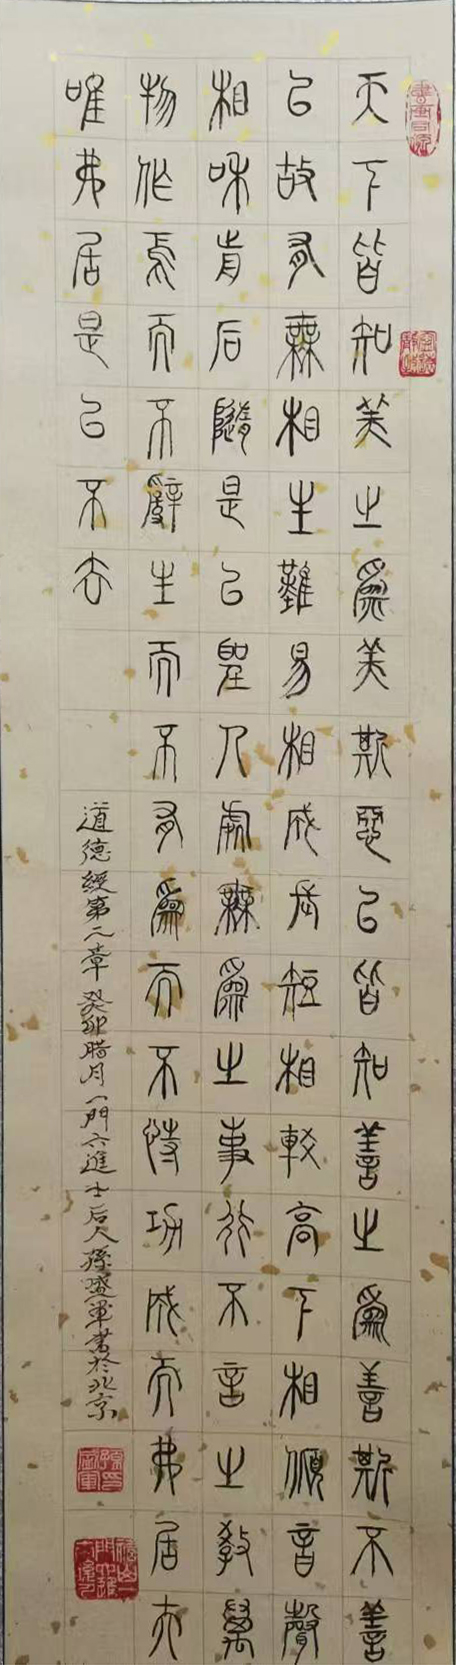 書畫同源
天下皆知美之爲美斯惡已皆知善之爲善斯不善
已故有無相生難易相成長短相較高下相傾音聲
相和前后隨是以聖人處無爲之事行不言之教萬
物作焉而不辭生而不有爲而不恃功成而弗居夫
唯弗居是以不去
道德經第二章癸卯腊月一門六進士后人孫盛軍書於北京